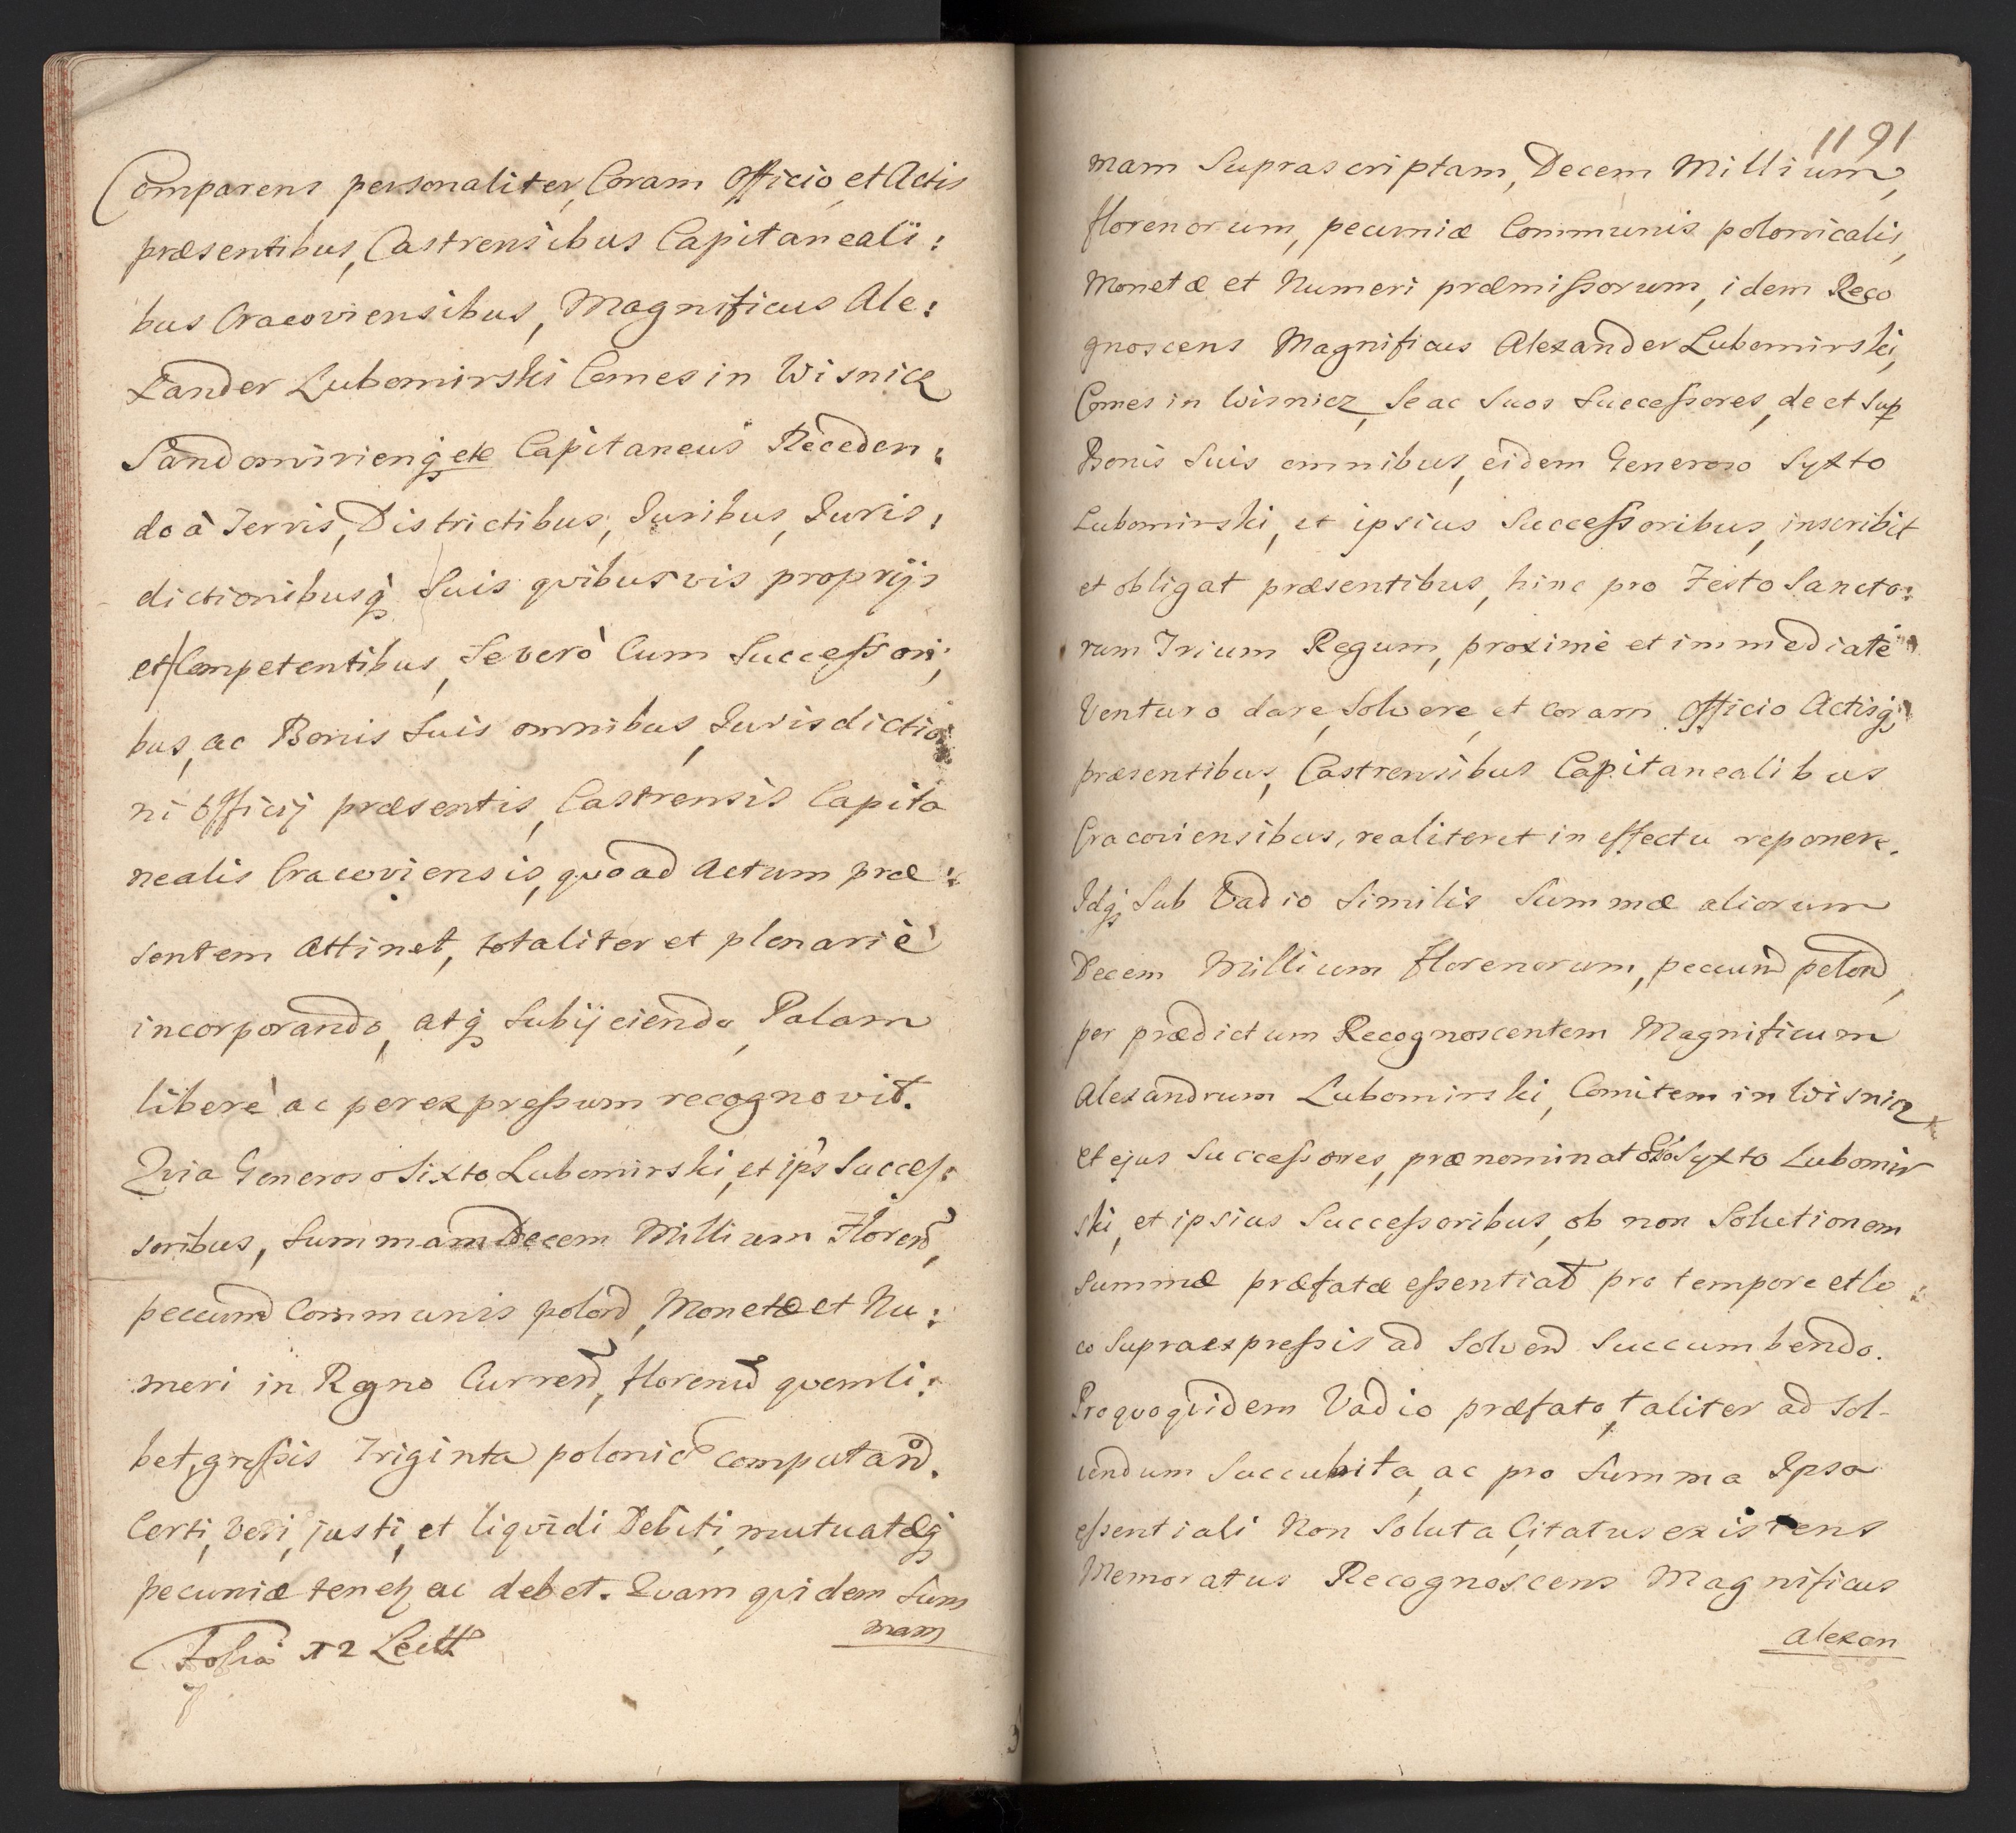 Comparens personaliter, Coram Officio, et Actis
præsentibus, Castrensibus Capitaneali:
bus Cracoviensibus, Magnificus Ale:
xander Lubomirski Comes in Wisnicz
Sandomirienq etc Capitaneus Receden:
do à Terris, Districtibus, Juribus, Juris,
dictionibusq Suis quibusvis proprijs
et Competentibus, Se verò Cum Successori,
bus, ac Bonis Suis omnibus, Jurisdictio
ni Officij præsentis, Castrensis Capita
nealis Cracoviensis, quoad Actum præ:
sentem Attinet, totaliter et plenariè
incorporando, atq Subijciendo, Palam
liberè ac per expressum recognovit.
Quia Generoso Sixto Lubomirski, et ips Succes:
soribus, Summam Decem Millium Floren,
pecun Communis polon, Monetæ et Nu:
meri in Regno Curren, floren quemli:
bet, grossis Triginta polonic computan.
Certi, Veri, justi, et liquidi Debiti, mutuatæq
pecuniæ tenet ac debet. Quam quidem Sum
mam
1191
mam Suprascriptam, Decem Millium,
florenorum, pecuniæ Communis polonicalis,
Monetæ et Numeri præmissorum, idem Reco
gnoscens Magnificus Alexander Lubomirski,
Comes in Wisnicz, Se ac Suos Successores, de et Sup
Bonis Suis omnibus, eidem Generoso Syxto
Lubomirski, et ipsius Successoribus, inscribit
et obligat præsentibus, hinc pro Festo Sancto:
rum Trium Regum, proximè et immediatè
Venturo dare, Solvere, et coram Officio Actisq
præsentibus, Castrensibus Capitanealibus
Cracoviensibus, realiter et in effectu reponere.
Idq Sub Vadio Similis Summæ aliorum
Decem Millium florenorum, pecun polon,
per prædictum Recognoscentem Magnificum
Alexandrum Lubomirski, Comitem in Wisnicz
et ejus Successores, prænominato Gso Syxto Lubomir
ski, et ipsius Successoribus, ob non Solutionem
Summæ præfatæ essential pro tempore et lo:
co Supraexpressis ad Solven Succumbendo.
Pro quo quidem Vadio præfato, taliter ad Sol-
vendum Succubita, ac pro Summa Ipsa
essentiali Non Soluta, Citatus existens
Memoratus Recognoscens Magnificus
Alexan